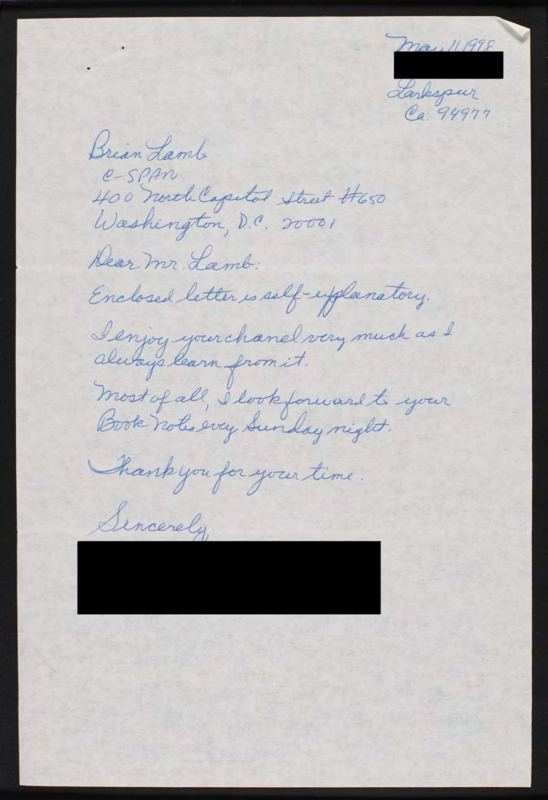 May 11 1998
Larkspur
Ca. 94977
Brian Lamb
C-SPAN
400 North Capitol Street #650
Washington, D.C. 20001
Dear Mr. Lamb:
Enclosed letter is self-explanatory.
I enjoy your chanel very much as I
always learn from it.
Most of all, I look forward to your
Book Notes every Sunday night.
Thank you for your time.
Sincerely,